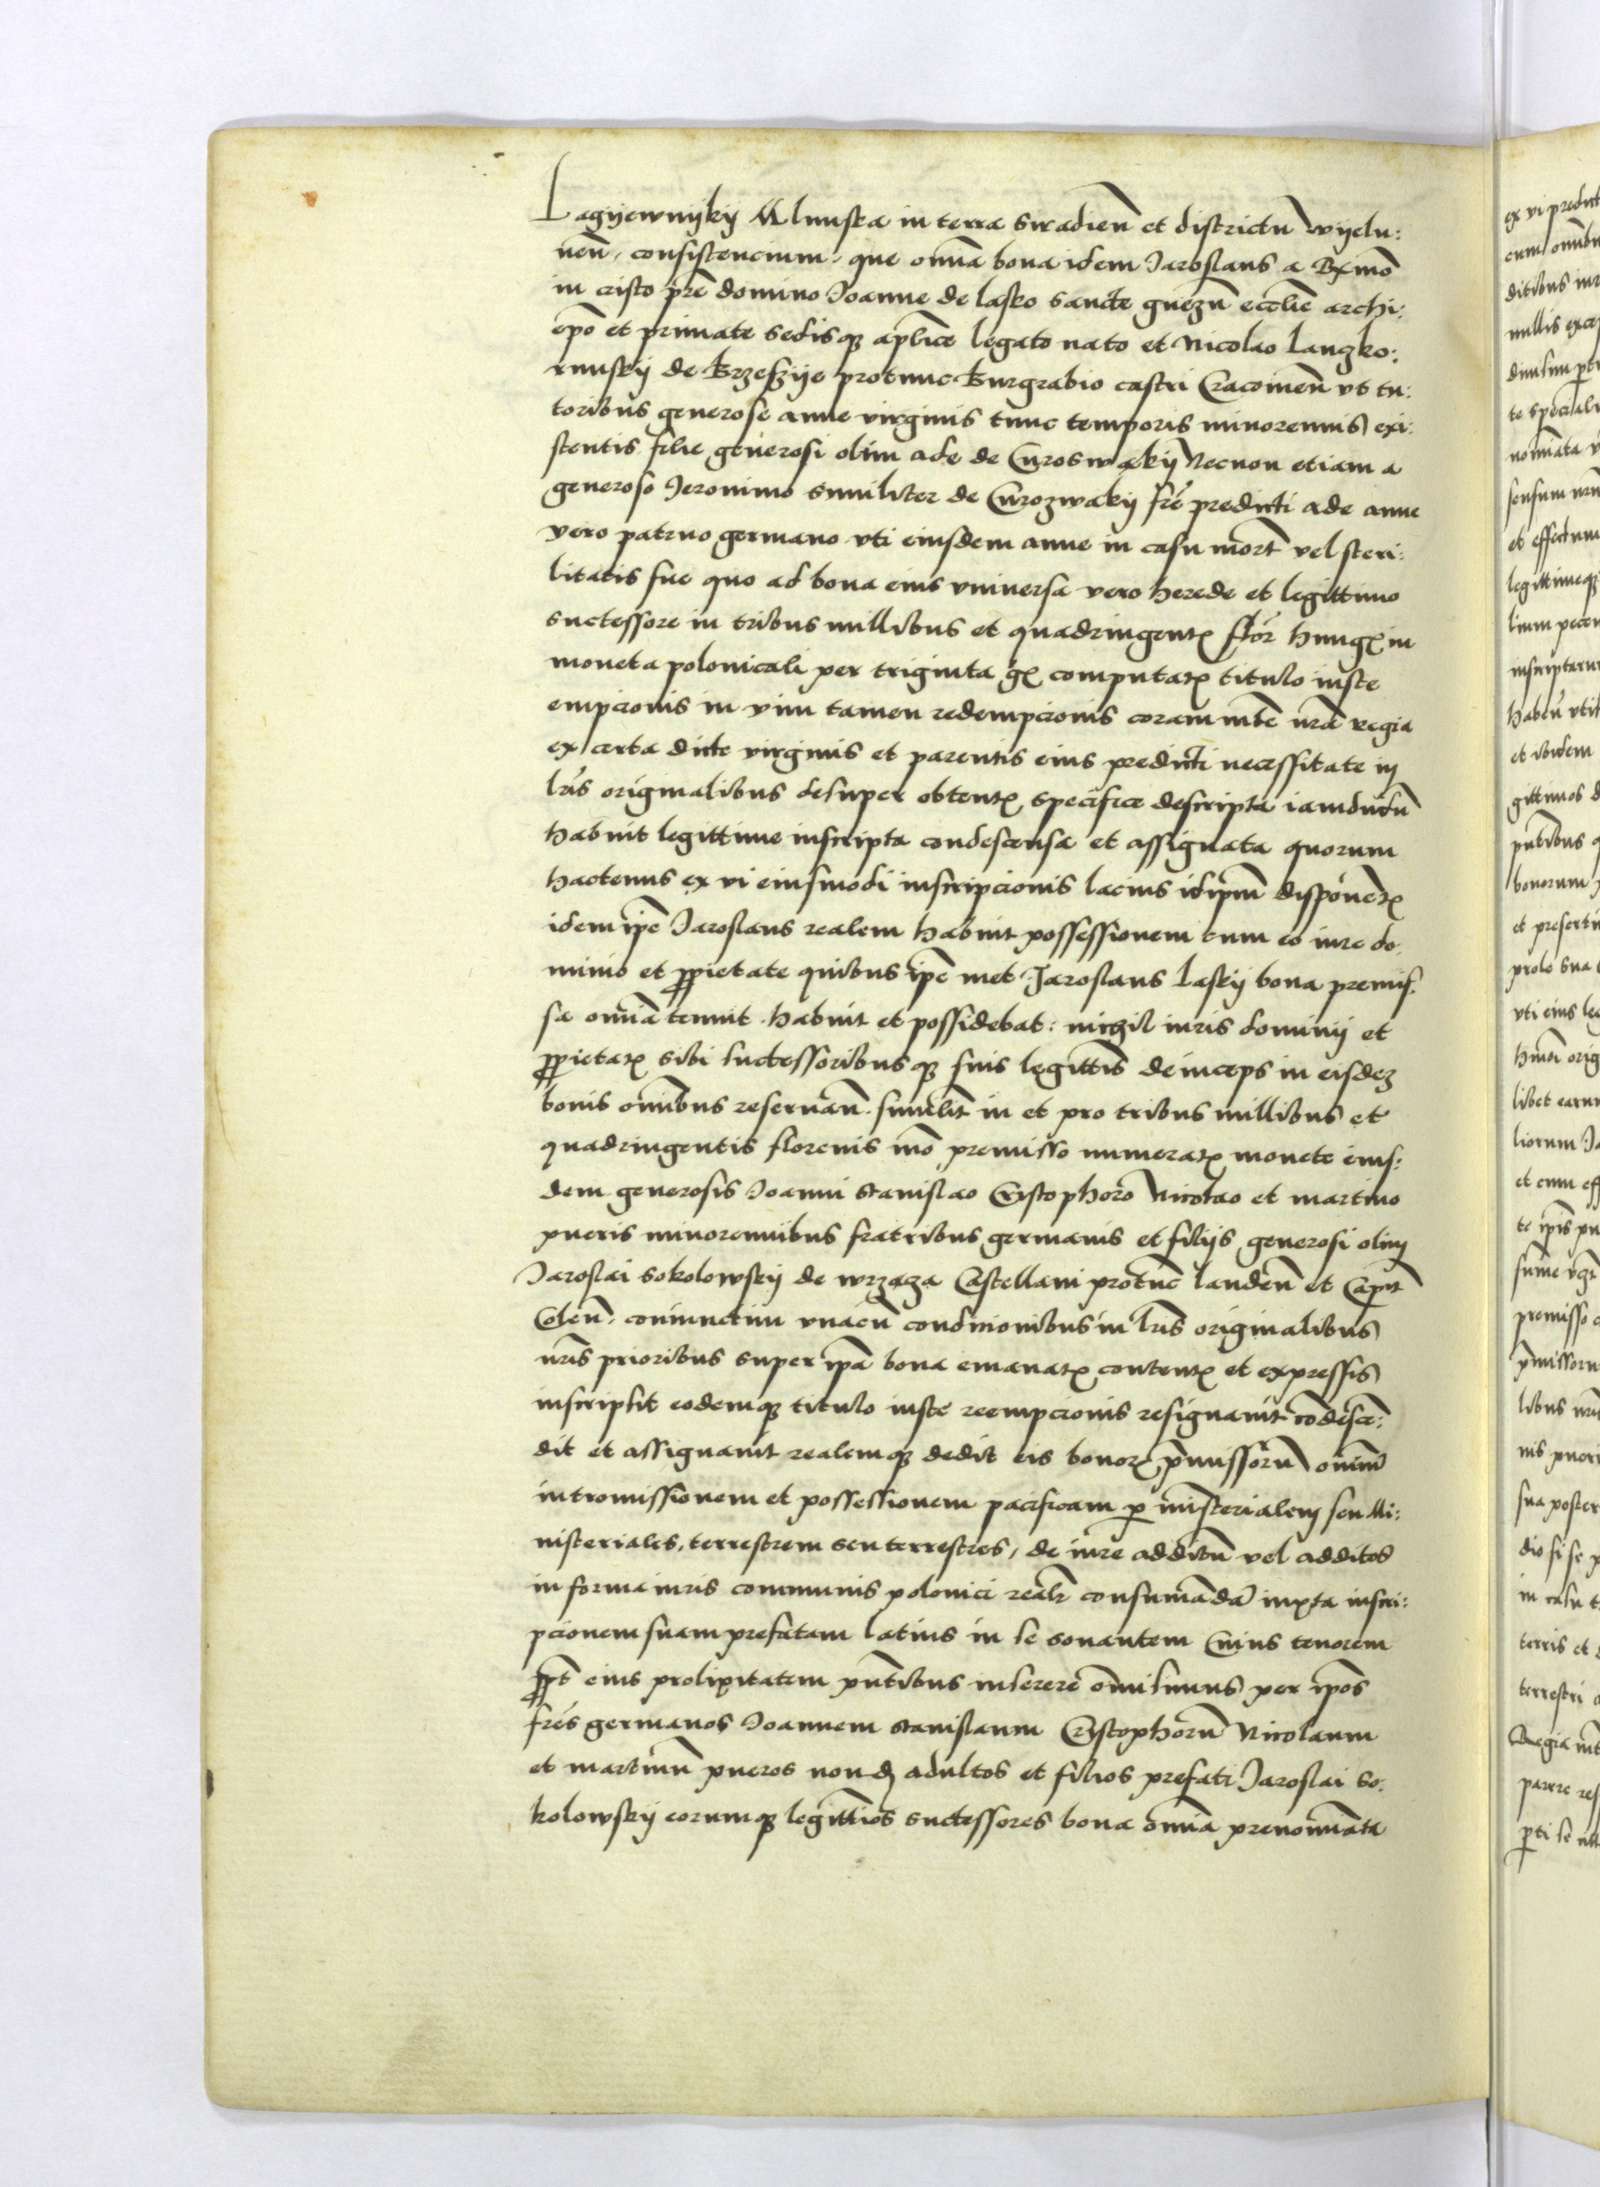 Lagyewnyky Mlunska in terra Siradien̄ et districtu Vyelu:
nen̄, consistencium, que om̄ia bona idem Jaroslaus a Rx̄mo
in cristo pr̄e domino Joanne de lasko Sancte gnezn̄ eccl̄ie archi:
ep̄o et primate sedisq̨ apl̄ice legato nato et Nicolao Lanczko:
runsky de Brzeszye protunc Burgrabio castri Cracouien̄ vt tu:
toribus generose anne virginis tunc temporis minorennis exi:
stentis filie generosi olim ade de Curoswąky Necnon etiam a
generoso Jeronimo similiter de Curozwaky fr̄e predicti ade anne
vero patruo germano vti eiusdem anne in casu mort̄ vel steri:
litatis sue quo ad bona eius vniversa vero herede et legittimo
successore in tribus millibus et quadringentꝭ flor̄ hungꝭ in
moneta polonicali per triginta gꝭ computatꝭ titulo iuste
empcionis in vim tamen redempcionis coram mt̄e nr̄a regia
ex certa dicte virginis et parentis eius predicti necessitate in
lr̄is originalibus desuper obtentꝭ specifice descripta iamdudū
habuit legittime inscripta condescensa et assignata quorum
hactenus ex vi eiusmodi inscripcionis lacius idip̄m disponen̄tꝭ
idem ip̄e Jaroslaus realem habuit possessionem cum eo iure do
minio et ꝓprietate quibus ip̄e met Jaroslaus Lasky bona premis:
sa om̄ia tenuit. habuit et possidebat: nichil iuris dominij et
ꝓprietatꝭ sibi successoribusq̨ suis legittīs deinceps in eisdeꝫ
bonis om̄ibus reseruan̄. similit̄ in et pro tribus millibus et
quadringentis florenis mō premisso numeratꝭ monete eius:
dem generosis Joanni Stanislao Cristophoro Nicolao et martino
pueris minorennibus fratribus germanis et filijs generosi olim
Jaroslai Sokolowsky de wrzącza Castellani protūc landen̄ et Capit̄
Colen̄. coniunctim vnacū condicionibus in lr̄is originalibus
nr̄is prioribus super ip̄a bona emanatꝭ contentꝭ et expressis
inscripsit eodemq̨ titulo iuste reempcionis resignauit cōdescē:
dit et assignauit realemq̨ dedit eis bonorꝭ p̄missorū om̄im̄
intromissionem et possessionem pacificam ꝑ mīsterialem seu Mi:
nisteriales, terrestrem seu terrestres, de iure additū vel additos
in forma iuris communis polonici realr̄ consumādā iuxta inscri:
pcionem suam prefatam latius in se sonantem Cuius tenorem
ꝓpt̄ eius prolixitatem pn̄tibus inserere om̄isimus per ip̄os
fr̄es germanos Joannem Stanislaum Cristophorū Nicolaum
et martinū pueros nondū adultos et filios prefati Jaroslai So:
kolowsky eorumq̨ legittīos successores bona om̄ia prenominata